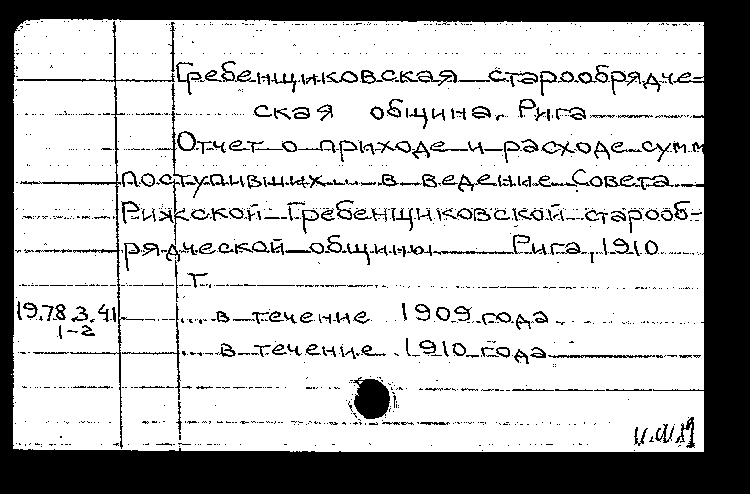 Гребенщиковская старообрядче=
ская община. Рига
Отчет о приходе и расходе сумм
поступивших... в ведение Совета
Рижской Гребенщиковской старооб-
рядческой общины Рига, 1910
Т.
19.78.3.41 ... в течение 1909 года.
1-2
... в течение 1910 года